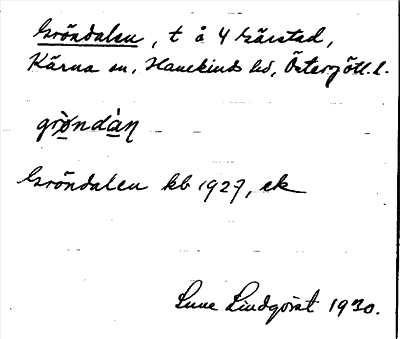 Gröndalen, t å 4 Gärstad,
Kärna sn, Hanekinds hd, Östergötl. l.
grö̀ndàn
Gröndalen kb 1927, ek
Sune Lindqvist 1930.